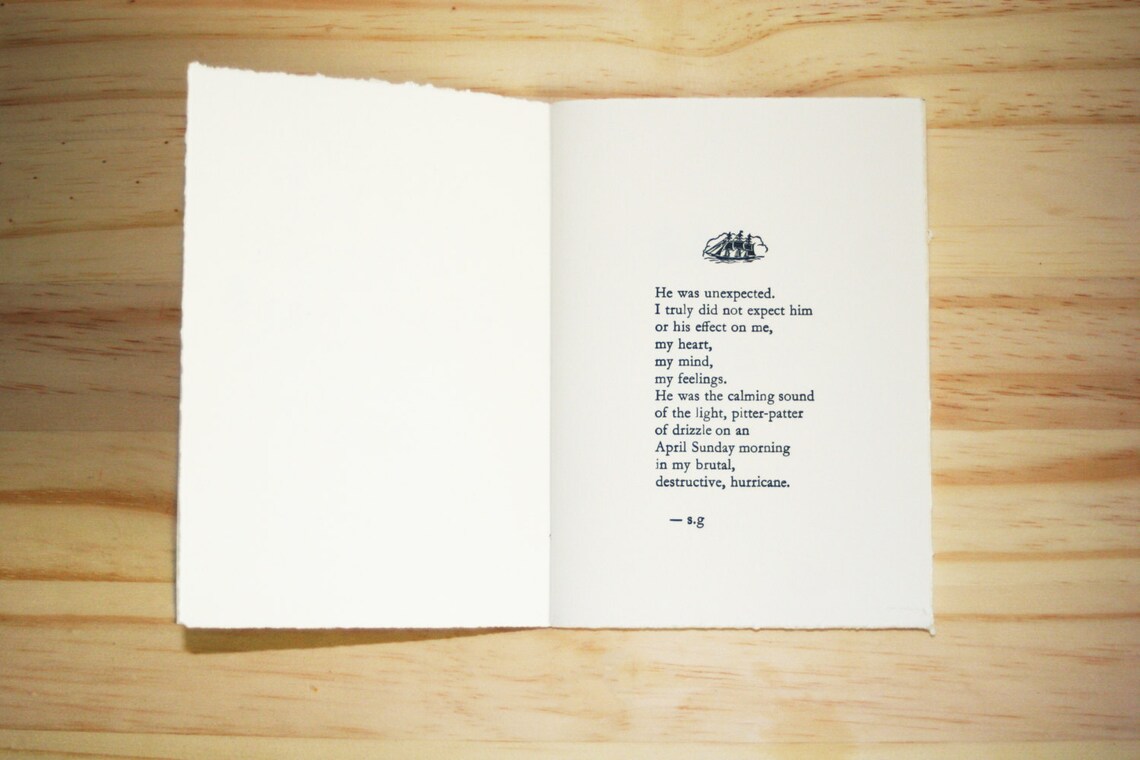 He was unexpected.
I truly did not expect him
or his effect on me,
my heart,
my mind,
my feelings.
He was the calming sound
of the light, pitter-patter
of drizzle on an
April Sunday morning
in my brutal,
destructive, hurricane.
— s.g